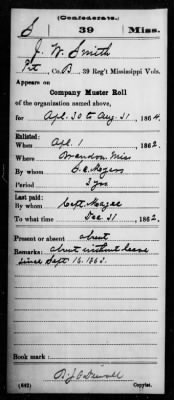 (Confederate.)
S 39 Miss.
J. W. Smith
Pvt, Co. B, 39 Reg't Mississippi Vols.
Appears on
Company Muster Roll
of the organization named above,
for Apl. 30 to Aug 31, 1864.
Enlisted:
When Apl. 1, 1862.
Where Brandon, Miss
By whom
Period 3 yrs
Last paid:
By whom Capt. Magee
To what time Dec 31, 1862.
Present or absent absent
Remarks: absent without leave
since Sept 16. 1863.
Book mark:
(642) Copyist.